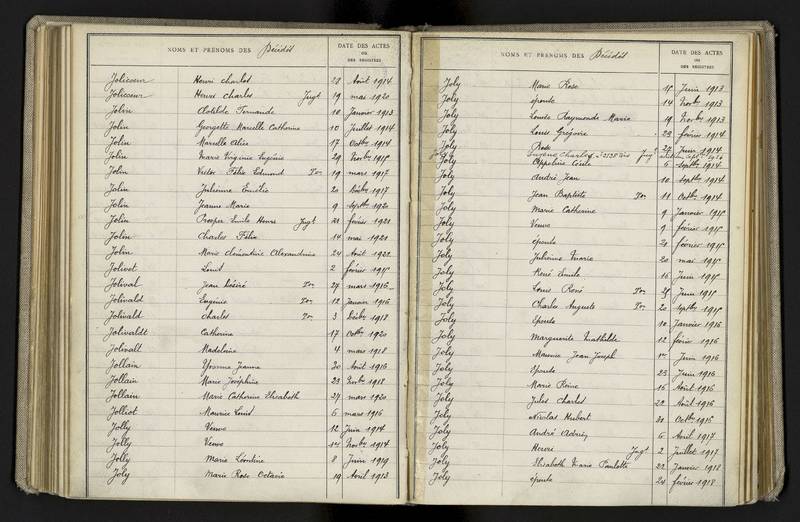 NOMS ET PRÉNOMS DES Décédés
DATE DES ACTES
OU
DES REGISTRES
Jolicoeur Henri Charles 28 Août 1914
Jolicoeur Henri Charles Jugt 19 mai 1920
Jolin Clotilde Fernande 10 Janvier 1913
Jolin Georgette Marcelle Catherine 10 Juillet 1914
Jolin Marcelle Alice 17 Octbre 1914
Jolin Marie Virginie Eugénie 29 Novbre 1915
Jolin Victor Félix EdmondTon 19 mars 1917
Jolin Julienne Emélie 20 Décbre 1917
Jolin Jeanne Marie 9 Septbre 1920
Jolin Prosper Emile Henri Jugt 21 février 1921
Jolin Charles Félix 14 mai 1921
Jolin Marie Clémentine Alexandrine 24 Août 1922
Jolivet Louis 2 février 1915
Jolival Jean Désiré Ton 27 mars 1916
Jolivald Eugénie Ton 12 Janvier 1916
Jolivald Charles Ton 3 Décbre 1918
Jolivaldt Catherine 17 Octbre 1920
Jolivalt Madeleine 4 mars 1918
Jollain Yvonne Jeanne 30 Août 1916
Jollain Marie Joséphine 23 Novbre 1918
Jollain Marie Catherine Elisabeth 27 mars 1920
Jolliot Maurice Louis 6 mars 1916
Jolly Veuve 12 Juin 1914
Jolly Veuve 1er Novbre 1914
Jolly Marie Léontine 8 Juin 1919
Joly Marie Rose Octavie 19 Avril 1913
NOMS ET PRÉNOMS DES Décédés
DATE DES ACTES
OU
DES REGISTRES
Joly Marie Rose Juin 1913
Joly épouse 14 Novbre 1913
Joly Louise Raymonde Marie 19 Novbre 1913
Joly Louis Grégoire 22 février 1914
Joly Rose 27 Juin 1914
Joly Eugène Charles Jugt
Joly Appoline Cécile 6 Septbre 1914
Joly André Jean 10 Septbre 1914
Joly Jean Baptiste Ton 11 Octbre 1914
Joly Marie Catherine 9 Janvier 1915
Joly Veuve 9 février 1915
Joly épouse 20 février 1915
Joly Julienne Marie 20 mai 1915
Joly René Emile 16 Juin 1915
Joly Louis René Ton 25 Juin 1915
Joly Charles Auguste Ton 20 Septbre 1915
Joly Epouse 10 Janvier 1916
Joly Marguerite Mathilde 12 février 1916
Joly Maurice Jean Joseph 1er Juin 1916
Joly Epouse 23 Juin 1916
Joly Marie Reine 16 Août 1916
Joly Jules Charles 22 Août 1916
Joly Nicolas Hubert 31 Octbre 1916
Joly André Adrien 6 Avril 1917
Joly Hervé Jugt 2 Juillet 1917
Joly Elisabeth Marie Paulette 22 Janvier 1918
Joly épouse 24 février 1918